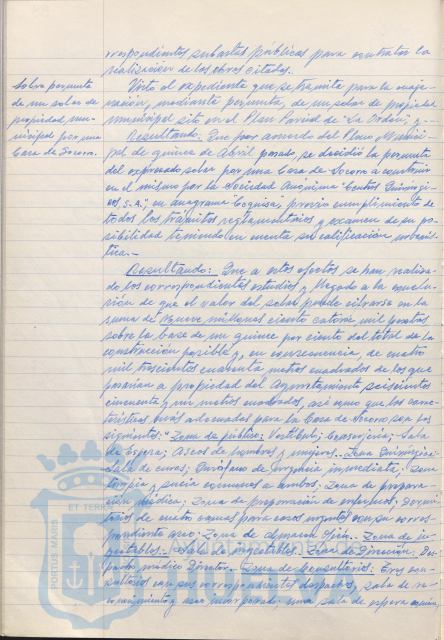 rrespondientes subastas públicas para contratar la
realización de las obras citadas.
Sobre permuta
de un solar de
propiedad mu-
nicipal por una
Casa de Socorro.
Visto el expediente que se tramita para la enaje-
nación, mediante permuta, de un solar de propiedad
municipal sito en el Plan Parcial de "La Orden; y
Resultando: Que por acuerdo del Pleno Munici-
pal de quince de Abril pasado, se decidió la permuta
del expresado solar por una Casa de Socorro a construir
en el mismo por la Sociedad Anónima Centros Quirúrgi-
cos, S.A.", en anagrama Cequisa; previo cumplimiento de
todos los trámites reglamentarios y examen de su po-
sibilidad teniendo en cuenta su calificación urbanís-
tica.-
Resultando: Que a estos efectos se han realiza-
do los correspondientes estudios y llegado a la conclu-
sión de que el valor del solar puede cifrarse en la
suma de nueve millones ciento catorce mil pesetas
sobre la base de un quince por ciento del total de la
construcción posible y, en consecuencia, de cuatro
mil trescientos cuarenta metros cuadrados de los que
pasarían a propiedad del Ayuntamiento seiscientos
cincuenta y un metros cuadrados, así como que las carac-
terísticas más adecuadas para la Casa de Socorro son las
siguientes: "Zona de público: Vestíbulo; Conserjería; Sala
de Espera; Aseos de hombres y mujeres.- Zona Quirúrgica:
Sala de curas; Quirófano de urgencia inmediata; Zona
limpia y sucia comunes a ambos; Zona de prepara-
ción médica; Zona de preparación de enfermos; Dormi-
torios de cuatro camas para casos urgentes con su corres-
pondiente aseo; Zona de
table.- Sala de Zona de Dirección: Des-
pacho médico Director.- Zona de Consultorios: Tres con-
sultorios con sus correspondientes despachos, sala de re-
conocimiento y aseo incorporado; una sala de espera común,
PORTUS MARIS ET TERRA